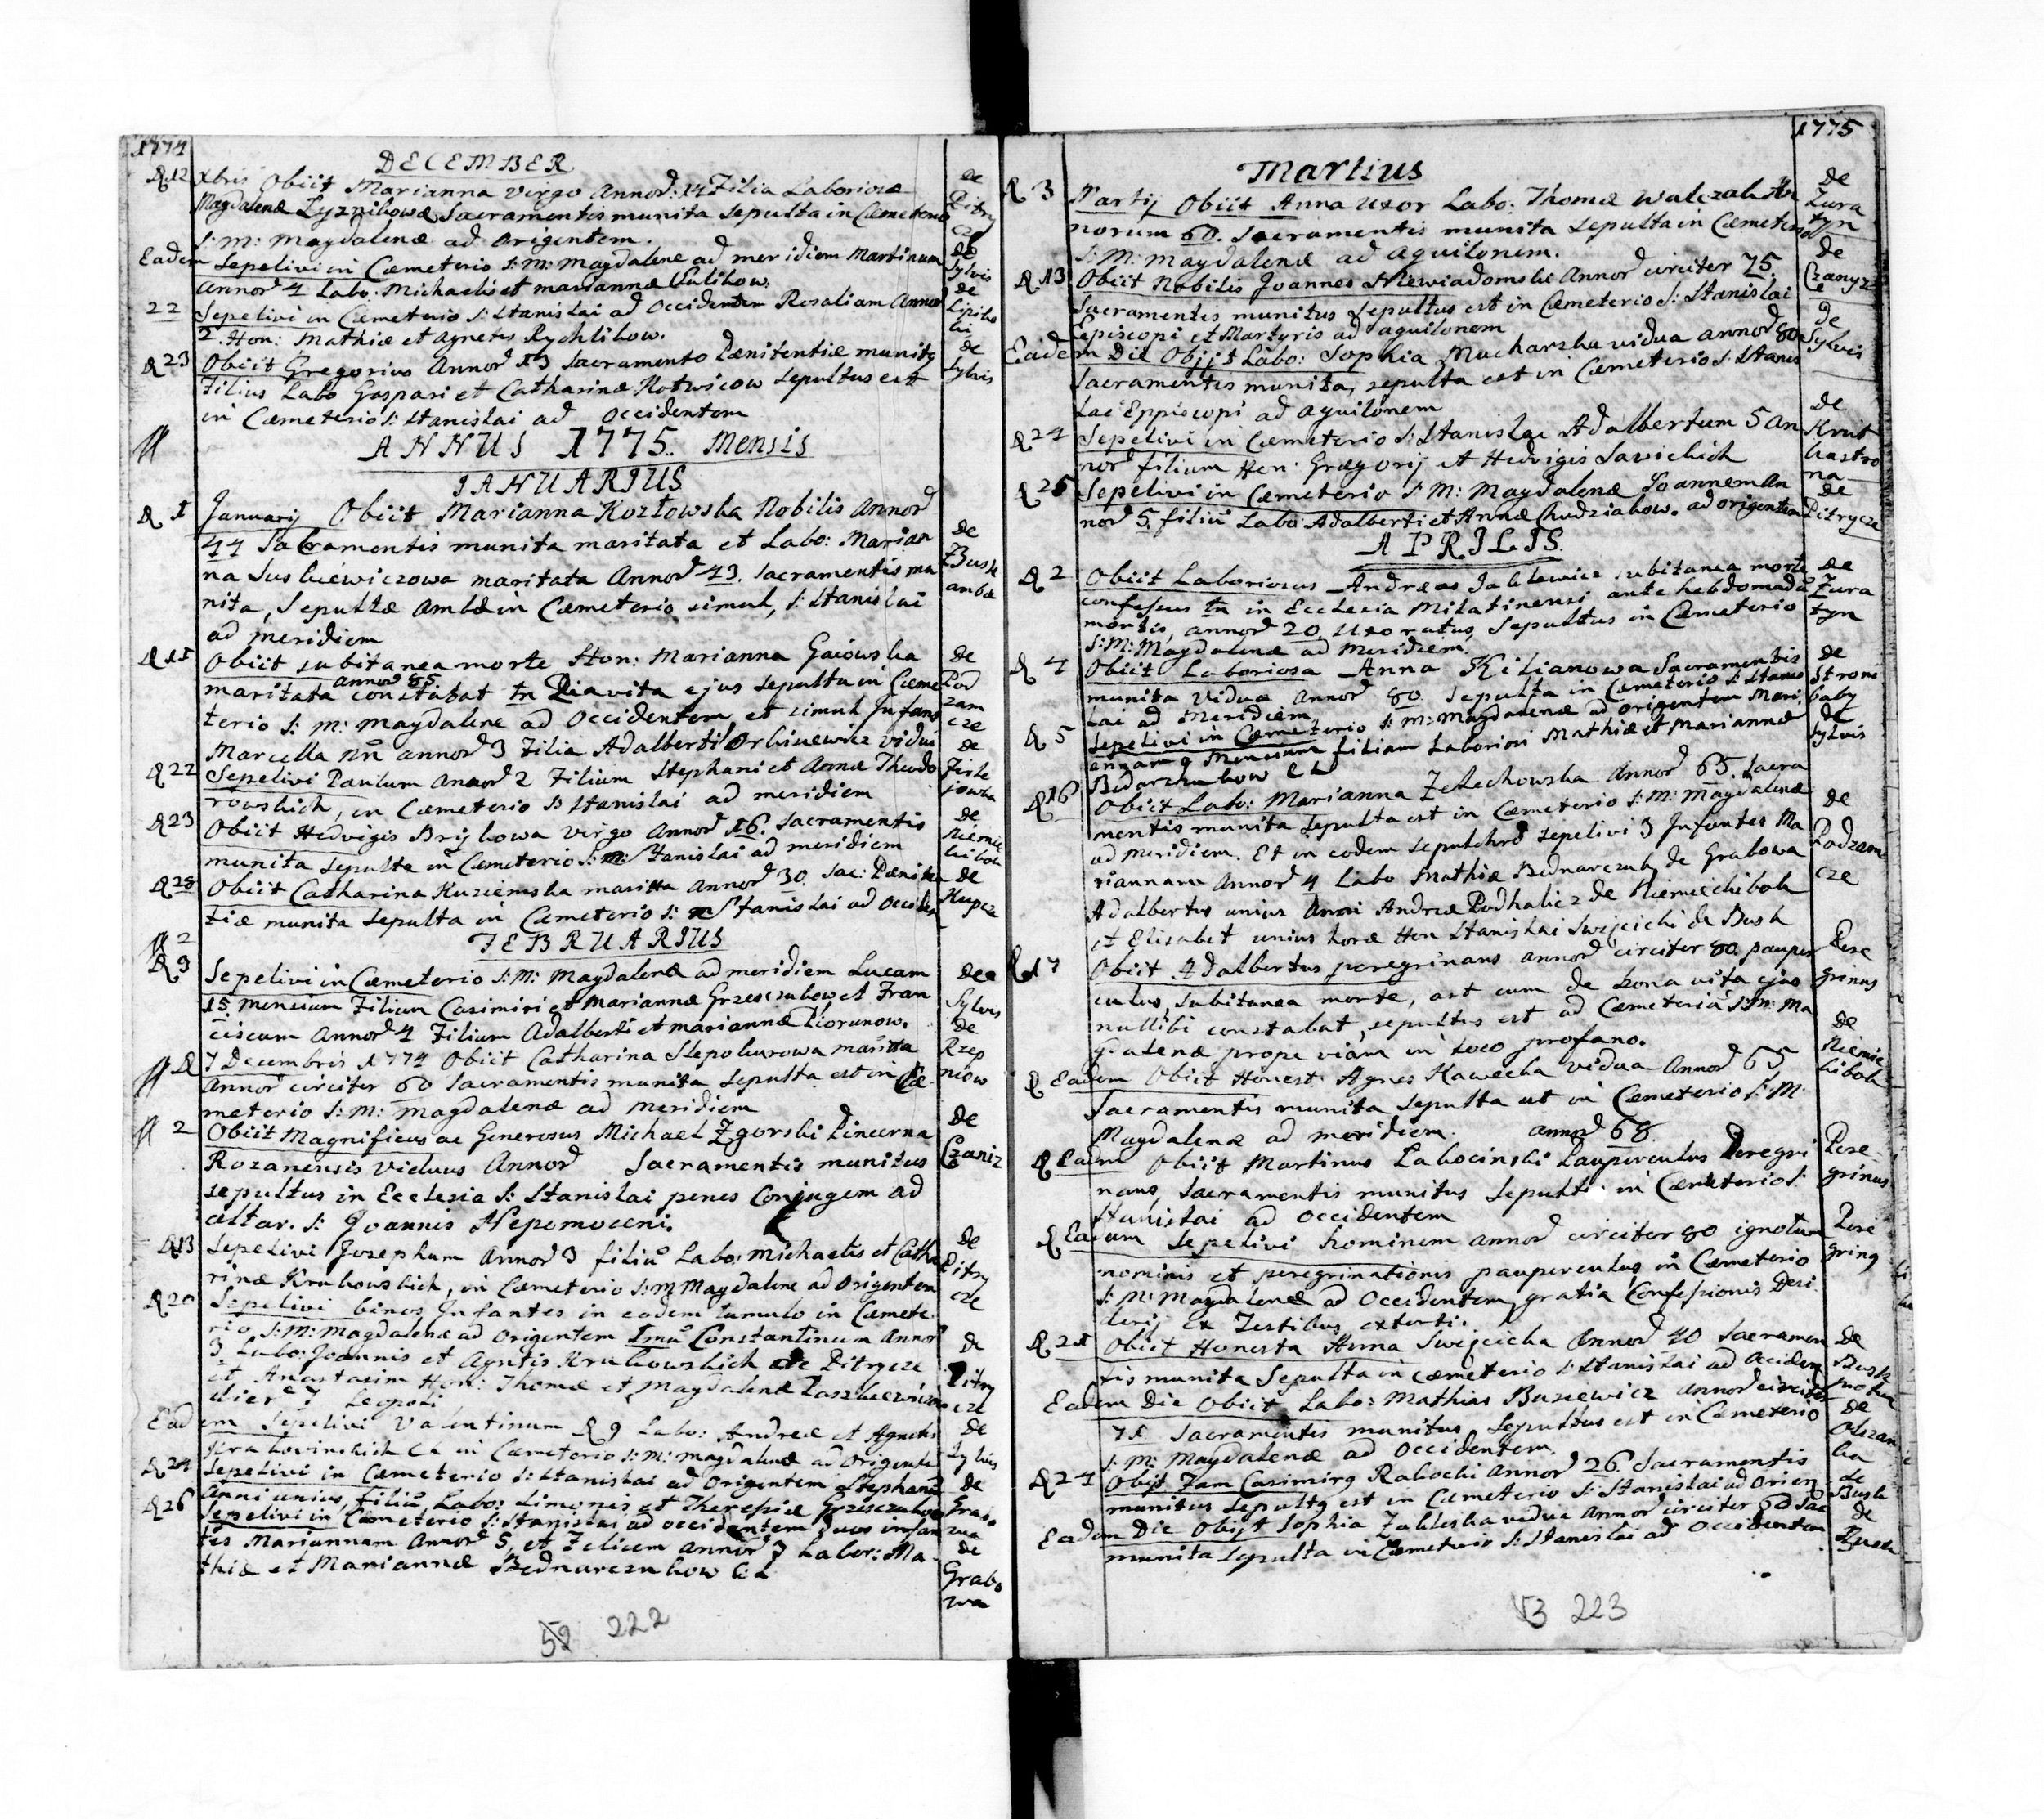 1774
DECEMBER
12 Xbris Obiit Marianna Virgo Annoꝝ: 14 Filia Laboriosæ de
Magdalenæ Sacramentis munita sepulta in Cæmeterio Pitry
S: M: Magdalenæ ad Origentem. cze
Eadem Sepelivi in Cæmeterio S: M: Magdalenæ ad meridiem Martinum de Sylvis
Annoꝝ 4 Labo: Michaelis et Mariannæ Kulikow. de
22 Sepelivi in Cæmeterio S: Stanislai ad Occidentem Rosaliam Annoꝝ
2. Hon: Mathiæ et Agnetis Rychlikow.
23 Obiit Gregorius Annoꝝ 13 Sacramento Pænitentiæ munitꝯ de
Filius Labo Gaspari et Catharinæ Kotwicow sepultus est Sylvis
in Cæmeterio S: Stanislai ad Occidentem
ANNUS 1775. Mensis
IANUARIUS
1 Januarij Obiit Marianna Kozłowska Nobilis Annoꝝ
44 Sacramentis munita maritata et Labo: Marian de
na maritata Annoꝝ 43. Sacramentis mu Busk
nita, Sepultæ ambæ in Cæmeterio simul, S: Stanislai ambæ
ad meridiem
11 Obiit subitanea morte Hon: Marianna Gaiowska de
annoꝝ 85
maritata constabat tn Pia vita ejus sepulta in Cæme Pod
terio S: M: Magdalenæ ad Occidentem et simul Infans zam
cze
Marcella annoꝝ 3 Filia Adalberti vidui de
22 Sepelivi Paulum Annoꝝ 2 Filium Stephani et Annæ Theodo
rowskich, in Cæmeterio S Stanislai ad meridiem
23 Obiit Hedvigis Virgo Annoꝝ 16. Sacramentis de
munita sepulta in Cæmeterio S: Stanislai ad meridiem
28 Obiit Catharina Kuziemska Annoꝝ 30. Sac: Pænite de
tiæ munita sepulta in Cæmeterio S: Stanislai ad Occiden Kupcze
2 FEBRUARIUS
9 Sepelivi in Cæmeterio S: M: Magdalenæ ad meridiem Lucam de
15 mensium Filium Casimiri et Mariannæ Grzesczukow, et Fran Sylvis
ciscum Annoꝝ 4 Filium Adalberti et Mariannæ Piorunow. de
7 Decembris 1774 Obiit Catharina maritta Rzep
Annoꝝ circiter 60 Sacramentis munita sepulta est in Cæ niow
meterio S: M: Magdalenæ ad meridiem
2 Obiit Magnificus ac Generosus Michael Zgorski Pincerna de
Rozanensis viduus Annoꝝ Sacramentis munitus Czaniz
sepultus in Ecclesia S: Stanislai penes Conjugem ad
altar. S: Joannis Nepomuceni.
13 Sepelivi Josephum Annoꝝ 3 filiũ Labo: Michaelis et Catha de
rinæ Krukowskich, in Cæmeterio S: M Magdalenæ ad Origentem Pitry
cze
20 Sepelivi binos Infantes in eodem tumulo in Cæmete
rio, S: M: Magdalenæ ad Origentem Imũ Constantinum Annoꝝ
3 Labo: Joannis et Agnetis Krukowskich de Pitrycze de
et Anastasim Hon: Thomæ et Magdalenæ Pitry
cze
Eadem Sepelivi Valentinum 9 Labo: Andreæ et Agnetis de
in Cæmeterio S: M: Magdalenæ ad Origente Sylvis
24 Sepelivi in Cæmeterio S: Stanislai ad Origentem Stephanũ de
Anni unius, filiũ Labo: Simonis et Theresiæ Grzesczukow Grabo
26 Sepelivi in Cæmeterio S: Stanislai ad occidentem duos infan wa
tes Mariannam Annoꝝ 5, et Felicem annoꝝ 3 Labor: Ma de
thiæ et Mariannæ Bednarczukow Grabo
wa
52 222
1775
Martius
3 Martij Obiit Anna Uxor Labo: Thomæ Walczak An de
norum 60. Sacramentis munita sepulta in Cæmeterio Zura
S: M: Magdalenæ ad aquilonem. tyn
13 Obiit Nobilis Joannes Niewiadomski Annoꝝ circiter 75 de
Sacramentis munitus sepultus est in Cæmeterio S: Stanislai Czanyz
Episcopi et Martyris ad aquilonem
Eadem Die Obijt Labo: Sophia Mucharska vidua annoꝝ 80 de Sylvis
Sacramentis munita, sepulta est in Cæmeterio S: Stanis
lai Eppiscopi ad aquilonem
24 Sepelivi in Cæmeterio S: Stanislai Adalbertum 5 an de
noꝝ filium Hon: Grægorij et Hedvigis Savickich
25 Sepelivi in Cæmeterio S: M: Magdalenæ Joannem An de
noꝝ 5. filiũ Labo Adalberti et Annæ Chudziakow. ad origentem Pitrycze
APRILIS.
2 Obiit Laboriosus Andreas subitanea morte de
confessus tn in Ecclesia Milatinensi ante hebdomadã Zura
mortis, annoꝝ 20 Uxoratus, Sepultus in Cæmeterio tyn
S: M: Magdalenæ ad Meridiem.
4 Obiit Laboriosa Anna Kilianowa Sacramentis de
munita Vidua Annoꝝ 80. Sepulta in Cæmeterio S: Stanis Stroni
lai ad Meridiem baby
5 Sepelivi in Cæmeterio S: M: Magdalenæ ad origentem Mari de
annam 9 Mensium filiam Laboriosi Mathiæ et Mariannæ Sylvis
Bednarczukow
16 Obiit Labo: Marianna Zelechowska Annoꝝ 65. Sacra
mentis munita sepulta est in Cæmeterio S: M: Magdalenæ de
ad meridiem. Et in eodem sepulchro sepelivi 3 Infantes Ma Podzam
riannam Annoꝝ 4 Labo Mathiæ Bednarczuk de Grabowa cze
Adalbertus unius Anni Andreæ Podhalicz de Niemieckibok
et Elisabet unius horæ Hon Stanislai Swięcicki de Busk
17 Obiit Adalbertus peregrinans annoꝝ circiter 80 pauper Pere
culus, subitanea morte, ast cum de bona vita ejus grinus
nullibi constabat, sepultus est ad Cæmeteria S: M: Ma
gdalenæ prope viam in loco profano. de
Eadem Obiit Honest: Agnes Kawecka vidua Annoꝝ 65
Sacramentis munita sepulta est in Cæmeterio S: M:
Magdalenæ ad meridiem. annoꝝ 68
Eadem Obiit Martinus Labocinski Pauperculus Peregri Pere
nans, Sacramentis munitus Sepultꝯ in Cæmeterio S: grinus
Stanislai ad Occidentem
Eadem Sepelivi hominem annoꝝ circiter 80 ignotum Pere
nominis et peregrinationis pauperculus in Cæmeterio grinꝯ
S: M: Magdalenæ ad Occidentem, gratia Confessionis Desi
derij Ex Testibus exterti.
21 Obiit Honesta Anna Swięcicka Annoꝝ 40 Sacramen de
tis munita Sepulta in cæmeterio S: Stanislai ad Occiden Busk
Eadem Die Obiit Labo: Mathias Buzewicz annoꝝ circiter
71 Sacramentis munitus Sepultus est in Cæmeterio de
S: M: Magdalenæ ad Occidentem.
24 Obijt Fam Casimirꝯ Rabocki Annoꝝ 26 Sacramentis de
munitus sepultꝯ est in Cæmeterio S: Stanislai ad Orien Busk
Eadem Die Obijt Sophia vidua Annoꝝ circiter 60 Sac de
munita sepulta in Cæmeterio S: Stanislai ad Occidentem Busk
53 223